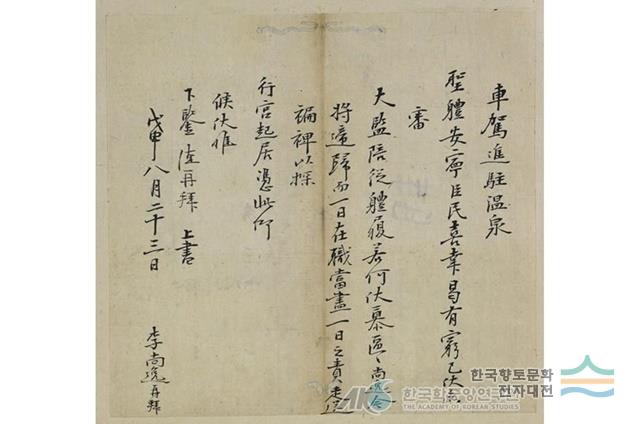 車駕進駐温泉
聖體安寧臣民喜幸曷有窮已伏
審
大監陪從軆履若何伏慕區〻尚逸今
將遞歸而一日在職當盡一日之責走
褊裨以探
行宮起居憑此仰
候伏惟
下鑒隆再拜 上書
戊申八月二十三日
李尚逸再拜
한국향토문화
전자대전
한국학중앙연구원
THE ACADEMY OF KOREAN STUDIES